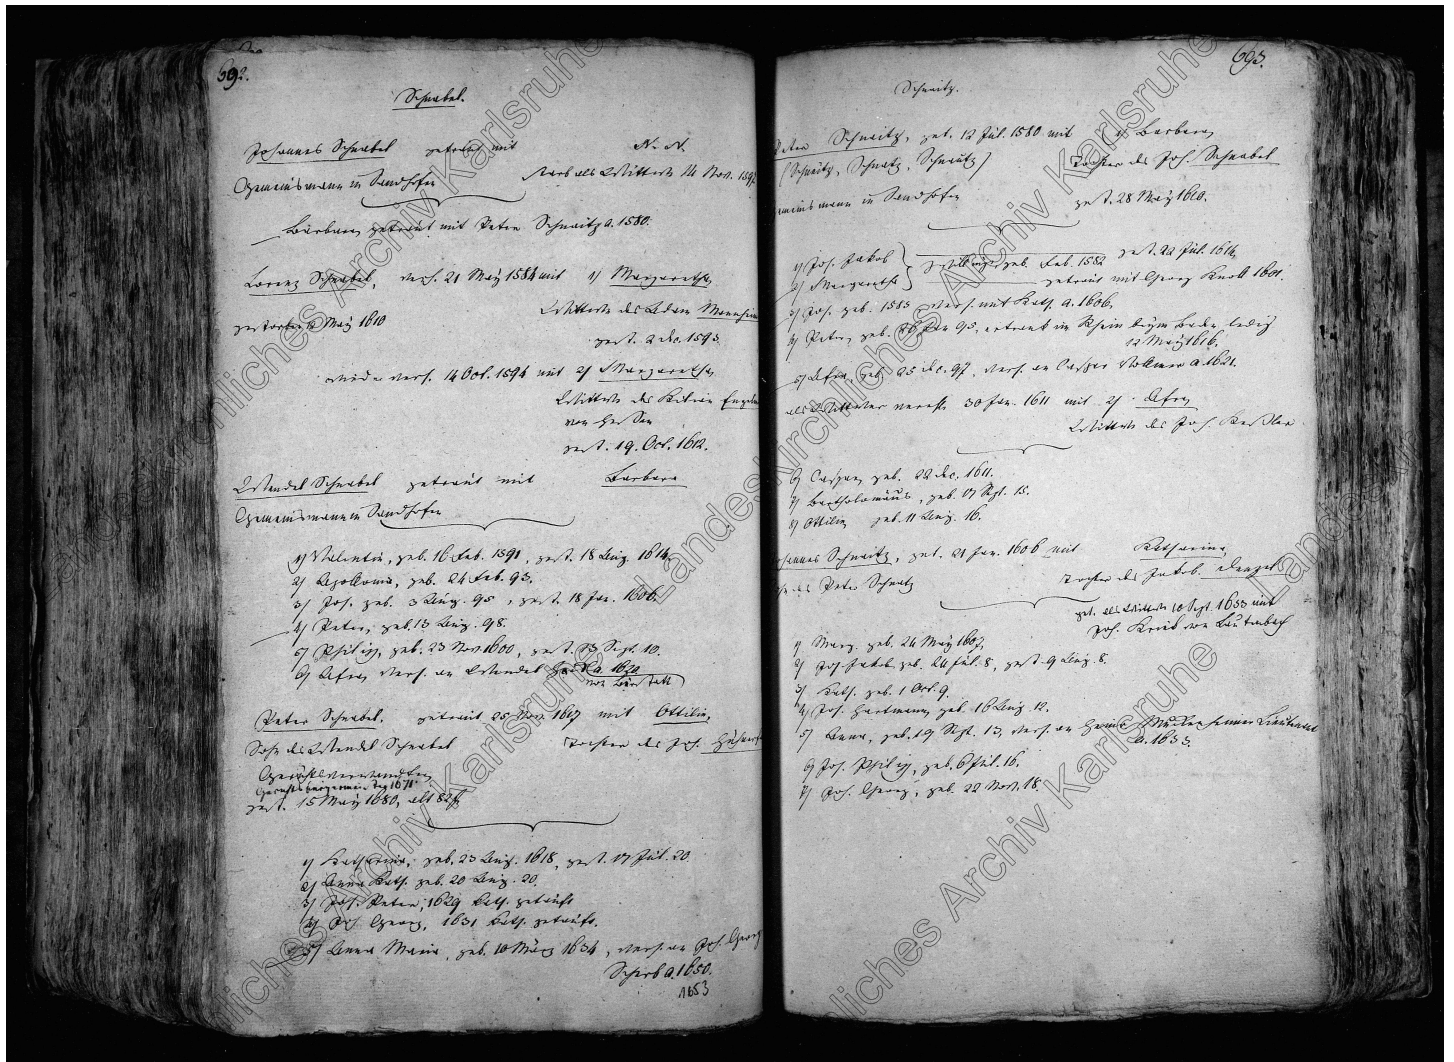 692.
Schnabel.
Johannes Schnabel getraut mit N. N.
Gemeinsmann in Sandhofen starb als Wittwe 14 Nov. 1597.
Barbara getraut mit Peter Schnaitz a. 1580.
Lorenz Schnabel, verh. 21 May 1584 mit 1) Margaretha
Wittwe des Adam Mannheim
gestorben May 1610
gest. 2 Dec. 1593.
wieder verh. 14 Oct. 1594 mit 2) Margaretha
Wittwe des Kilian
von
gest. 19. Oct. 1612.
Wendel Schnabel getraut mit Barbara
Gemeinsmann in Sandhofen
1) Valentin, geb. 16 Feb. 1591, gest. 18 Aug. 1614.
2) Apollonia, geb. 24 Feb. 93.
3) Joh. geb. 3 Aug. 95, gest. 18 Jan. 1606.
4) Peter, geb. 13 Aug. 98.
5) Philipp, geb. 23 Nov 1600, gest. 23 Sept. 10.
6) Afra verh. an Wendel a. 1620
von Bürstatt
Peter Schnabel. getraut 25 Nov. 1617 mit Ottilia,
Sohn des Wendel Schnabel Tochter des Joh.
Gerichtsverwandter
Gerichtsbürgermeister 1671
gest. 15 May 1680, alt 82 J.
1) Katharina, geb. 23 Aug. 1618, gest. 17 Jul. 20.
2) Anna Kath. geb. 20 Aug. 20.
3) Joh. Peter, 1629 Kath. getauft
4) Joh Georg, 1631 Kath. getauft.
5) Anna Maria, geb. 10 März 1634, verh. an Joh. Georg
Scherb a. 1650.
1653
693.
Schnaitz.
Peter Schnaitz, get. 12 Jul. 1580 mit 1) Barbara
(Schnäitz, Schnatz, Schnäutz) Tochter des Joh. Schnabel
Gemeinsmann in Sandhofen gest. 28 May 1610.
1) Joh. Jakob Zwillinge geb. Feb. 1582 gest. 22 Jul. 1614.
2) Margaretha getraut mit Georg 1601.
3) Joh. geb. 1585 verh. mit Kath. a. 1606.
4) Peter, geb. Jan 95, ertrank im Rhein beym Baden ledig
12 May 1616.
5) Afra, geb. 25 Dec. 97, verh. an Casper Vollmer a. 1621.
als Wittwer verh. 30 Jan. 1611 mit 2) Afra
Wittwe des Joh. Keßler.
6) Caspar geb. 22 Dec. 1611.
7) Bartholomäus, geb. 17 Sept. 15.
8) Ottilia geb. 11 Aug. 16.
Johannes Schnaitz, get. 21 Jan. 1606 mit Katharina
Sohn des Peter Schnatz Tochter des Jakob Wenzel
get. als Wittwe 10 Sept. 1633 mit
Joh. von Lautenbach
1) Marg. geb. 24 May 1607,
2) Joh Jakob geb. 24 Jul. 8, gest. 9 Aug. 8.
3) Kath. geb. 1 Oct. 9.
4) Joh. Hartmann, geb. 16 Aug. 12.
5) Anna, geb. 19 Sept. 13, verh. an Lieutenant
a. 1633.
6) Joh. Philipp, geb. 6 Jul. 16.
7) Joh. Georg, geb. 22 Nov. 18.
Landeskirchliches Archiv Karlsruhe